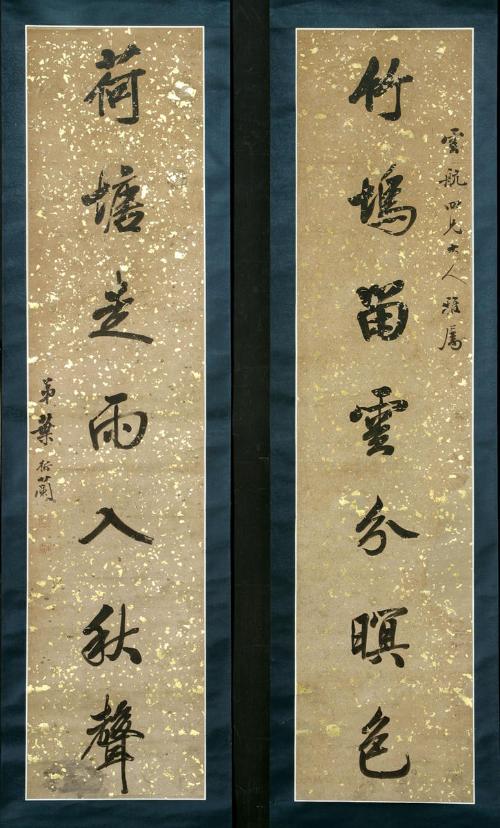 雲航四兄大人雅屬
竹塢留雲分暝色
荷塘走雨入秋聲
弟葉衍蘭